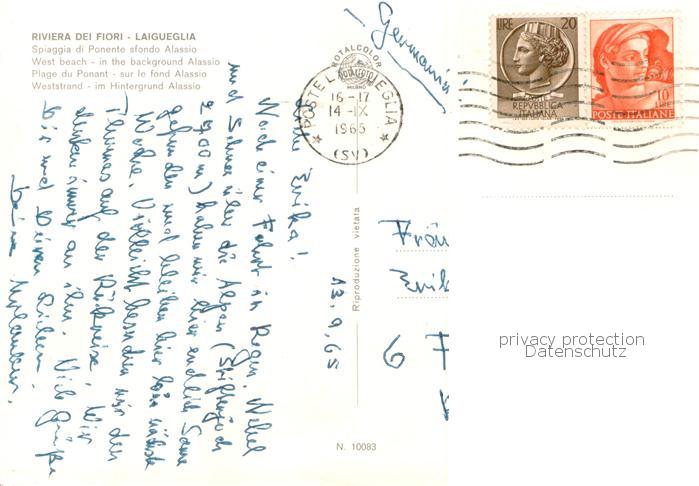 RIVIERA DEI FIORI - LAIGUEGLIA
Spiaggia di Ponente sfondo Alassio
West beach - in the background Alassio
Plage du Ponant - sur le fond Alassio
Weststrand - im Hintergrund Alassio
Germania
ROTALCOLOR
ROTALFOTO
MILANO
POSTE LAIGUEGLIA
16-17
14-IX
1965
(SV)
LIRE 20
REPVBBLICA
ITALIANA
10
LIRE
POSTE ITALIANE
13.9.65
Erika!
Nach einer Fahrt in Regen, Nebel
und Schnee über die Alpen
2700m) haben wir hier endlich Sonne
gefunden und bleiben hier bis nächste
Woche. Vielleicht besuchen wir den
Thomas auf der Rückreise. Wir
denken immer an ihn. Viele Grüße
Dir und Deinen Lieben
Riproduzione vietata
N. 10083
Fräu
Erik
6 F
privacy protection
Datenschutz